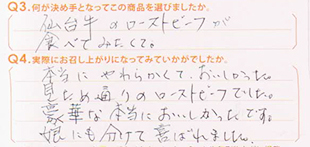 Q3.何が決め手となってこの商品を選びましたか。
仙台牛のローストビーフが
食べてみたくて。
Q4.実際にお召し上がりになってみていかがでしたか。
本当にやわらかくて、おいしかった。
見ため通りのローストビーフでした。
豪華な本当においしかったです。
娘にも分けて喜ばれました。